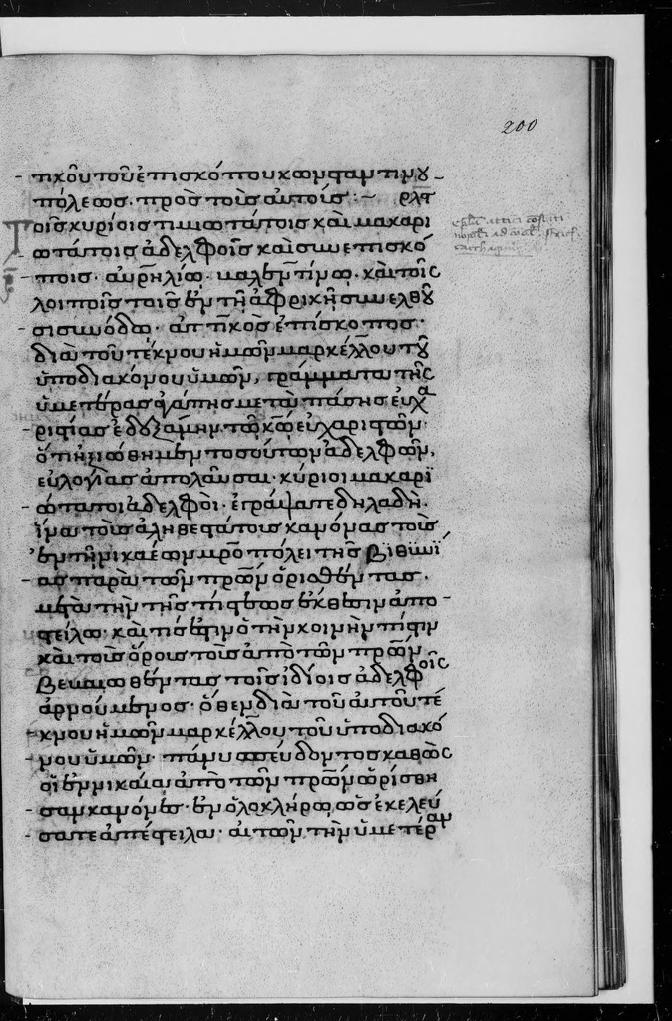 200
τικοῦ τοῦ ἐπισκόπου κωνσταντινου
πόλεως. πρὸς τοὺς αὐτούς :~ ρλϛ
Τοῖς κυρίοις τιμιωτάτοις καὶ μακαρι
ωτάτοις ἀδελφοῖς καὶ συνεπισκό
ποις. αὐρηλίω. βαλεντίνω. καὶ τοῖς
λοιποῖς τοῖς ἐν τῆ ἀφρικῆ συνελθοῦ
σι συνόδω. ἀττικὸς ἐπίσκοπος.
διὰ τοῦ τέκνου ἡμῶν μαρκέλλου τοῦ
ὑποδιακόνου ὑμῶν, γράμματα τῆς
ὑμετέρας ἀγάπης μετὰ πάσης εὐχα
ριστίας ἐδεξάμην
ὅτι ἠξιώθημεν τοσούτων ἀδελφῶν,
εὐλογίας ἀπολαῦσαι. κύριοι μακαρϊ
ώτατοι ἀδελφοὶ. ἐγράψατε δηλαδὴ.
ἵνα τοὺς ἀληθεστάτους κανόνας τοὺς
ἐν τῆ νικαέων μρο πόλει τῆς Βϊθυνΐ
ας παρὰ τῶν πρων ὁρισθέντας.
μετὰ τὴν τῆς πίστεως ἔκθεσιν ἀπο
στείλω. καὶ τίς ἐστιν ὁ τὴν κοινὴν πίστιν
καὶ τοὺς ὅρους τοὺς ἀπὸ τῶν πρων
Βεβαιωθέντας τοῖς ἰδίοις ἀδελφοῖς
ἀρνούμενος. ὅθεν διὰ τοῦ αὐτοῦ τέ
κνου ἡμῶν μαρκέλλου τοῦ ὑποδιακό
νου ὑμῶν. πάνυ σπεύδοντος καθὼς
οἱ ἐν νικαία ἀπὸ τῶν πρων ὡρίσθη
σαν κανόνες. ἐν ὁλοκλήρω ὡς ἐκελεύ
σατε ἀπέστειλα. αἰτῶν τὴν ὑμετέραν